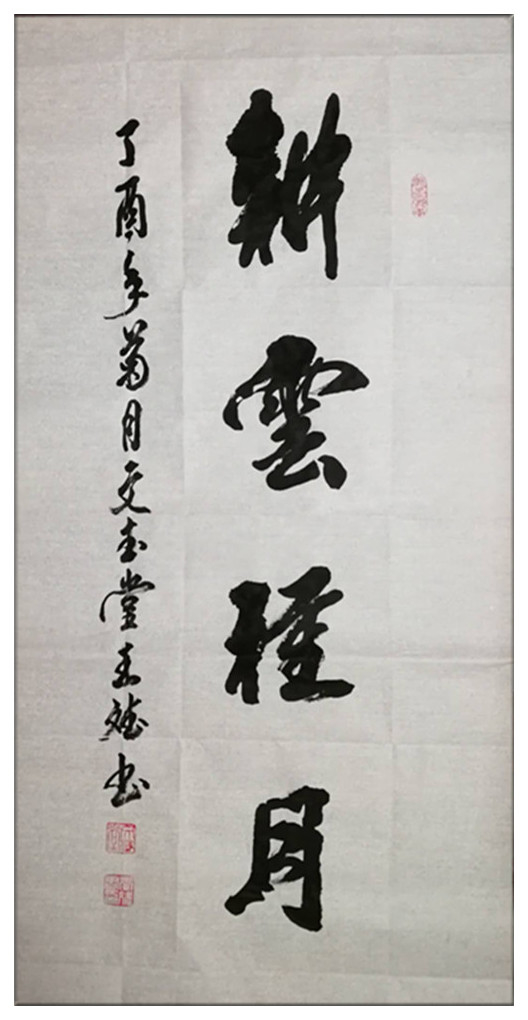 耕雲種月
丁酉年菊月堂主斌书